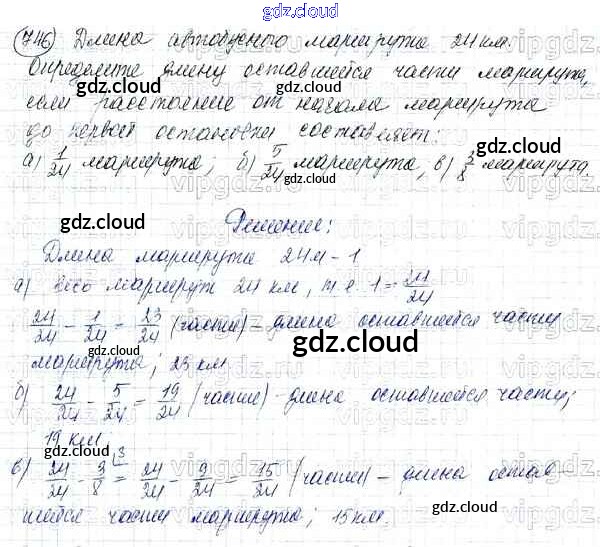 gdz.cloud
746 Длина автобусного маршрута 24 км.
Определите длину оставшейся части маршрута,
если расстояние от начала маршрута
до первой остановки составляет:
а) 1/24 маршрута; б) 5/24 маршрута, в) 3/8 маршрута.
gdz.cloud
gdz.cloud
Решение:
Длина маршрута 24 - 1
gdz.cloud
а) весь маршрут 24 км, т.е. 1 = 24/24
24/24 - 1/24 = 23/24 (части) - длина оставшейся части
маршрута; 23 км
gdz.cloud
б) 24/24 - 5/24 = 19/24 (части) - длина оставшейся части;
19 км
gdz.cloud
в) 24/24 - 3/8 = 24/24 - 9/24 = 15/24 (части) - длина остав-
gdz.cloud
шейся части маршрута; 15 км.
gdz.cloud